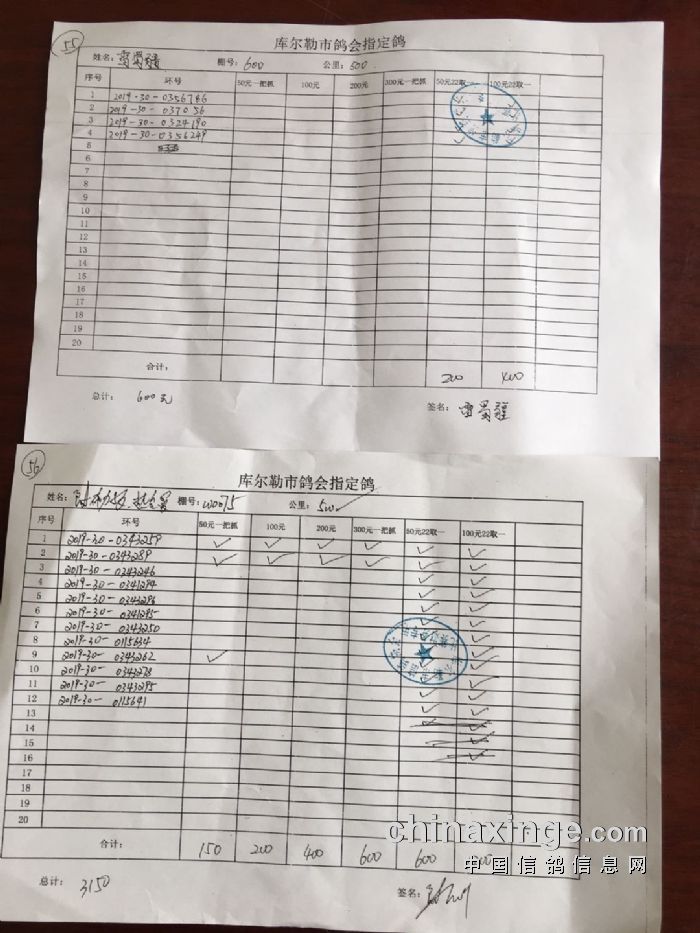 55
库尔勒市鸽会指定鸽
姓名： 棚号：600 公里：500
序号 环号 50元一把抓 100元 200元 300元一把抓 50元22取一 100元22取一
1 2019-30-0356786
2 2019-30-037056
3 2019-30-0324190
4 2019-30-0356249
5
6
7
8
9
10
11
12
13
14
15
16
17
18
19
20
合计： 200 400
总计： 600元 签名：
56
库尔勒市鸽会指定鸽
姓名： 棚号：W0075 公里：500
序号 环号 50元一把抓 100元 200元 300元一把抓 50元22取一 100元22取一
1 2019-30-0343259 ✓ ✓ ✓ ✓ ✓ ✓
2 2019-30-0343289 ✓ ✓ ✓ ✓ ✓ ✓
3 2019-30-0343246 ✓ ✓
4 2019-30-0341294 ✓ ✓
5 2019-30-0343296 ✓ ✓
6 2019-30-0341295 ✓ ✓
7 2019-30-0343250 ✓ ✓
8 2019-30-0115634 ✓ ✓
9 2019-30-0343262 ✓ ✓ ✓
10 2019-30-0343278 ✓ ✓
11 2019-30-0343295 ✓ ✓
12 2019-30-0115641 ✓ ✓
13
14
15
16
17
18
19
20
合计： 150 200 400 600 600
总计： 3150 签名：
chinaxinge.com
中国信鸽信息网